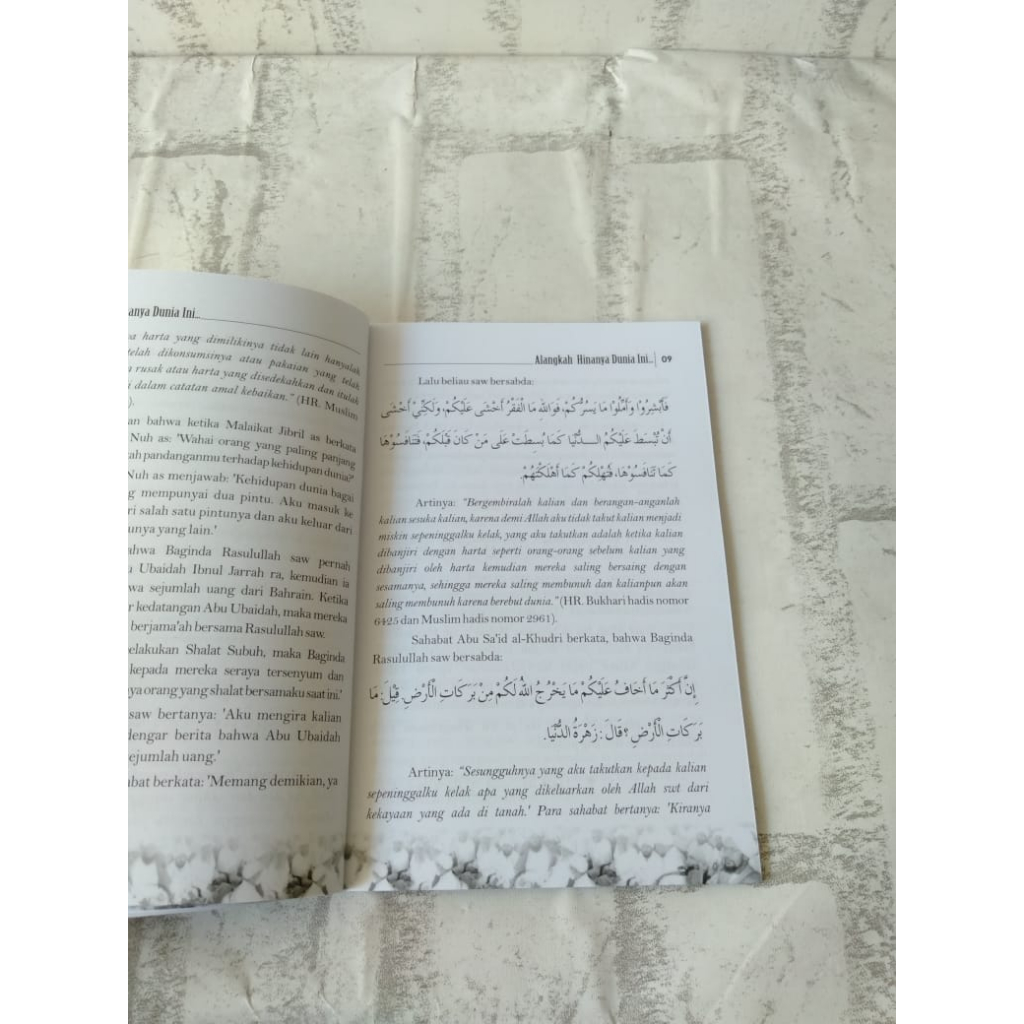 anya Dunia Ini...
a harta yang dimilikinya tidak lain hanyalah
telah dikonsumsinya atau pakaian yang telah
rusak atau harta yang disedekahkan dan itulah
i dalam catatan amal kebaikan." (HR. Muslim
).
an bahwa ketika Malaikat Jibril as berkata
Nuh as: 'Wahai orang yang paling panjang
ah pandanganmu terhadap kehidupan dunia?'
Nuh as menjawab: 'Kehidupan dunia bagai
g mempunyai dua pintu. Aku masuk ke
ri salah satu pintunya dan aku keluar dari
unya yang lain.'
ahwa Baginda Rasulullah saw pernah
u Ubaidah Ibnul Jarrah ra, kemudian ia
wa sejumlah uang dari Bahrain. Ketika
r kedatangan Abu Ubaidah, maka mereka
berjama'ah bersama Rasulullah saw.
elakukan Shalat Subuh, maka Baginda
kepada mereka seraya tersenyum dan
ya orang yang shalat bersamaku saat ini.'
saw bertanya: 'Aku mengira kalian
dengar berita bahwa Abu Ubaidah
ejumlah uang.'
abat berkata: 'Memang demikian, ya
Alangkah Hinanya Dunia Ini... 09
Lalu beliau saw bersabda:
فَأَبْشِرُوْا وَأَمِّلُوْا مَا يَسُرُّكُمْ، فَوَاللهِ مَا الْفَقْرُ أَخْشَى عَلَيْكُمْ، وَلَكِنِّيْ أَخْشَى
أَنْ تُبْسَطَ عَلَيْكُمُ الـدُّنْيَا كَمَا بُسِطَتْ عَلَى مَنْ كَانَ قَبْلَكُمْ، فَتَنَافَسُوْهَا
كَمَا تَنَافَسُوْهَا، فَتُهْلِكُمْ كَمَا أَهْلَكَتْهُمْ.
Artinya: "Bergembiralah kalian dan berangan-anganlah
kalian sesuka kalian, karena demi Allah aku tidak takut kalian menjadi
miskin sepeninggalku kelak, yang aku takutkan adalah ketika kalian
dibanjiri dengan harta seperti orang-orang sebelum kalian yang
dibanjiri oleh harta kemudian mereka saling bersaing dengan
sesamanya, sehingga mereka saling membunuh dan kalianpun akan
saling membunuh karena berebut dunia." (HR. Bukhari hadis nomor
6425 dan Muslim hadis nomor 2961).
Sahabat Abu Sa'id al-Khudri berkata, bahwa Baginda
Rasulullah saw bersabda:
إِنَّ أَكْثَرَ مَا أَخَافُ عَلَيْكُمْ مَا يَخْرُجُ اللهُ لَكُمْ مِنْ بَرَكَاتِ الْأَرْضِ قِيْلَ: مَا
بَرَكَاتِ الْأَرْضِ ؟ قَالَ : زَهْرَةُ الدُّنْيَا.
Artinya: "Sesungguhnya yang aku takutkan kepada kalian
sepeninggalku kelak apa yang dikeluarkan oleh Allah swt dari
kekayaan yang ada di tanah.' Para sahabat bertanya: 'Kiranya